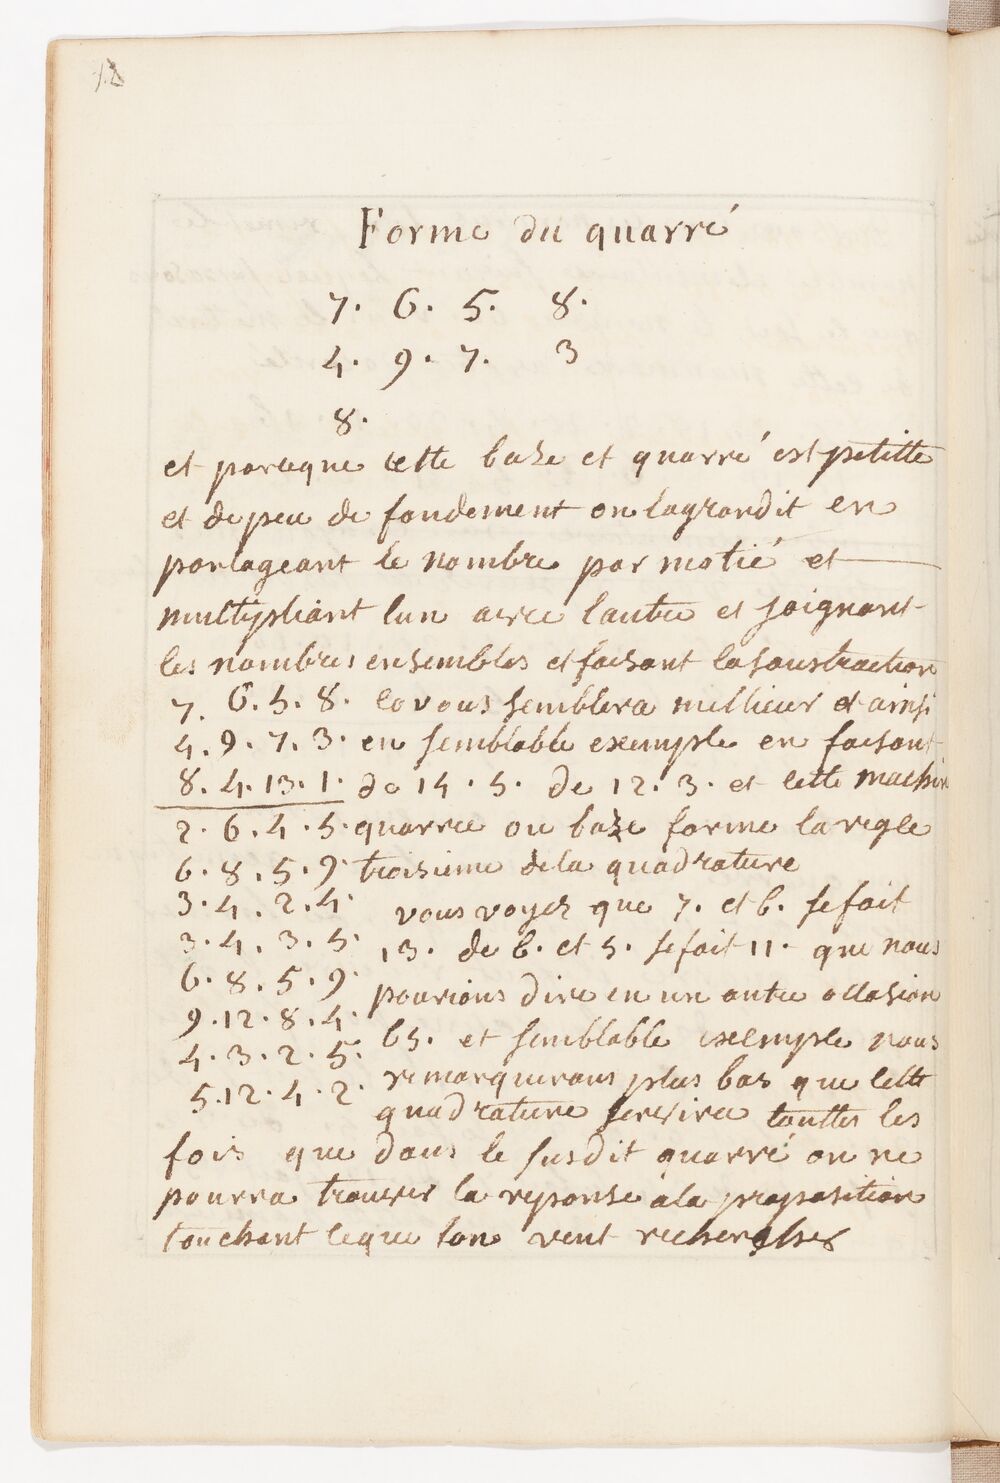 18
Forme du quarré
7. 6. 5. 8.
4. 9. 7. 3
8.
et parceque cette baze et quarré est petitte
et de peu de fondement on lagrandit en
partageant le nombre par motié et
multipliant lun avec lautre et joignant
les nombres ensembles et faisant la soustraction
7. 6. 5. 8. co vous semblera millieur et ainsi
4. 9. 7. 3. en semblable exemple en faisant
8. 4. 13. 1. de 14. 5. de 12. 3. et cette machin
2. 6. 4. 5. quarrée ou baze forme la regle
6. 8. 5. 9. troisieme de la quadrature
3. 4. 2. 4. vous voyez que 7. et 6. se fait
3. 4. 3. 5. 13. de 6. et 5. se fait 11. que nous
6. 8. 5. 9. pourions dire en un autre occasion
9. 12. 8. 4. 65. et semblable exemple nous
4. 3. 2. 5. remarquerons plus bas que cette
5. 12. 4. 2. quadrature servira touttes les
fois que dans le susdit quarré on ne
pourra trouver la reponse a la proposition
touchant ceque lon veut rechercher